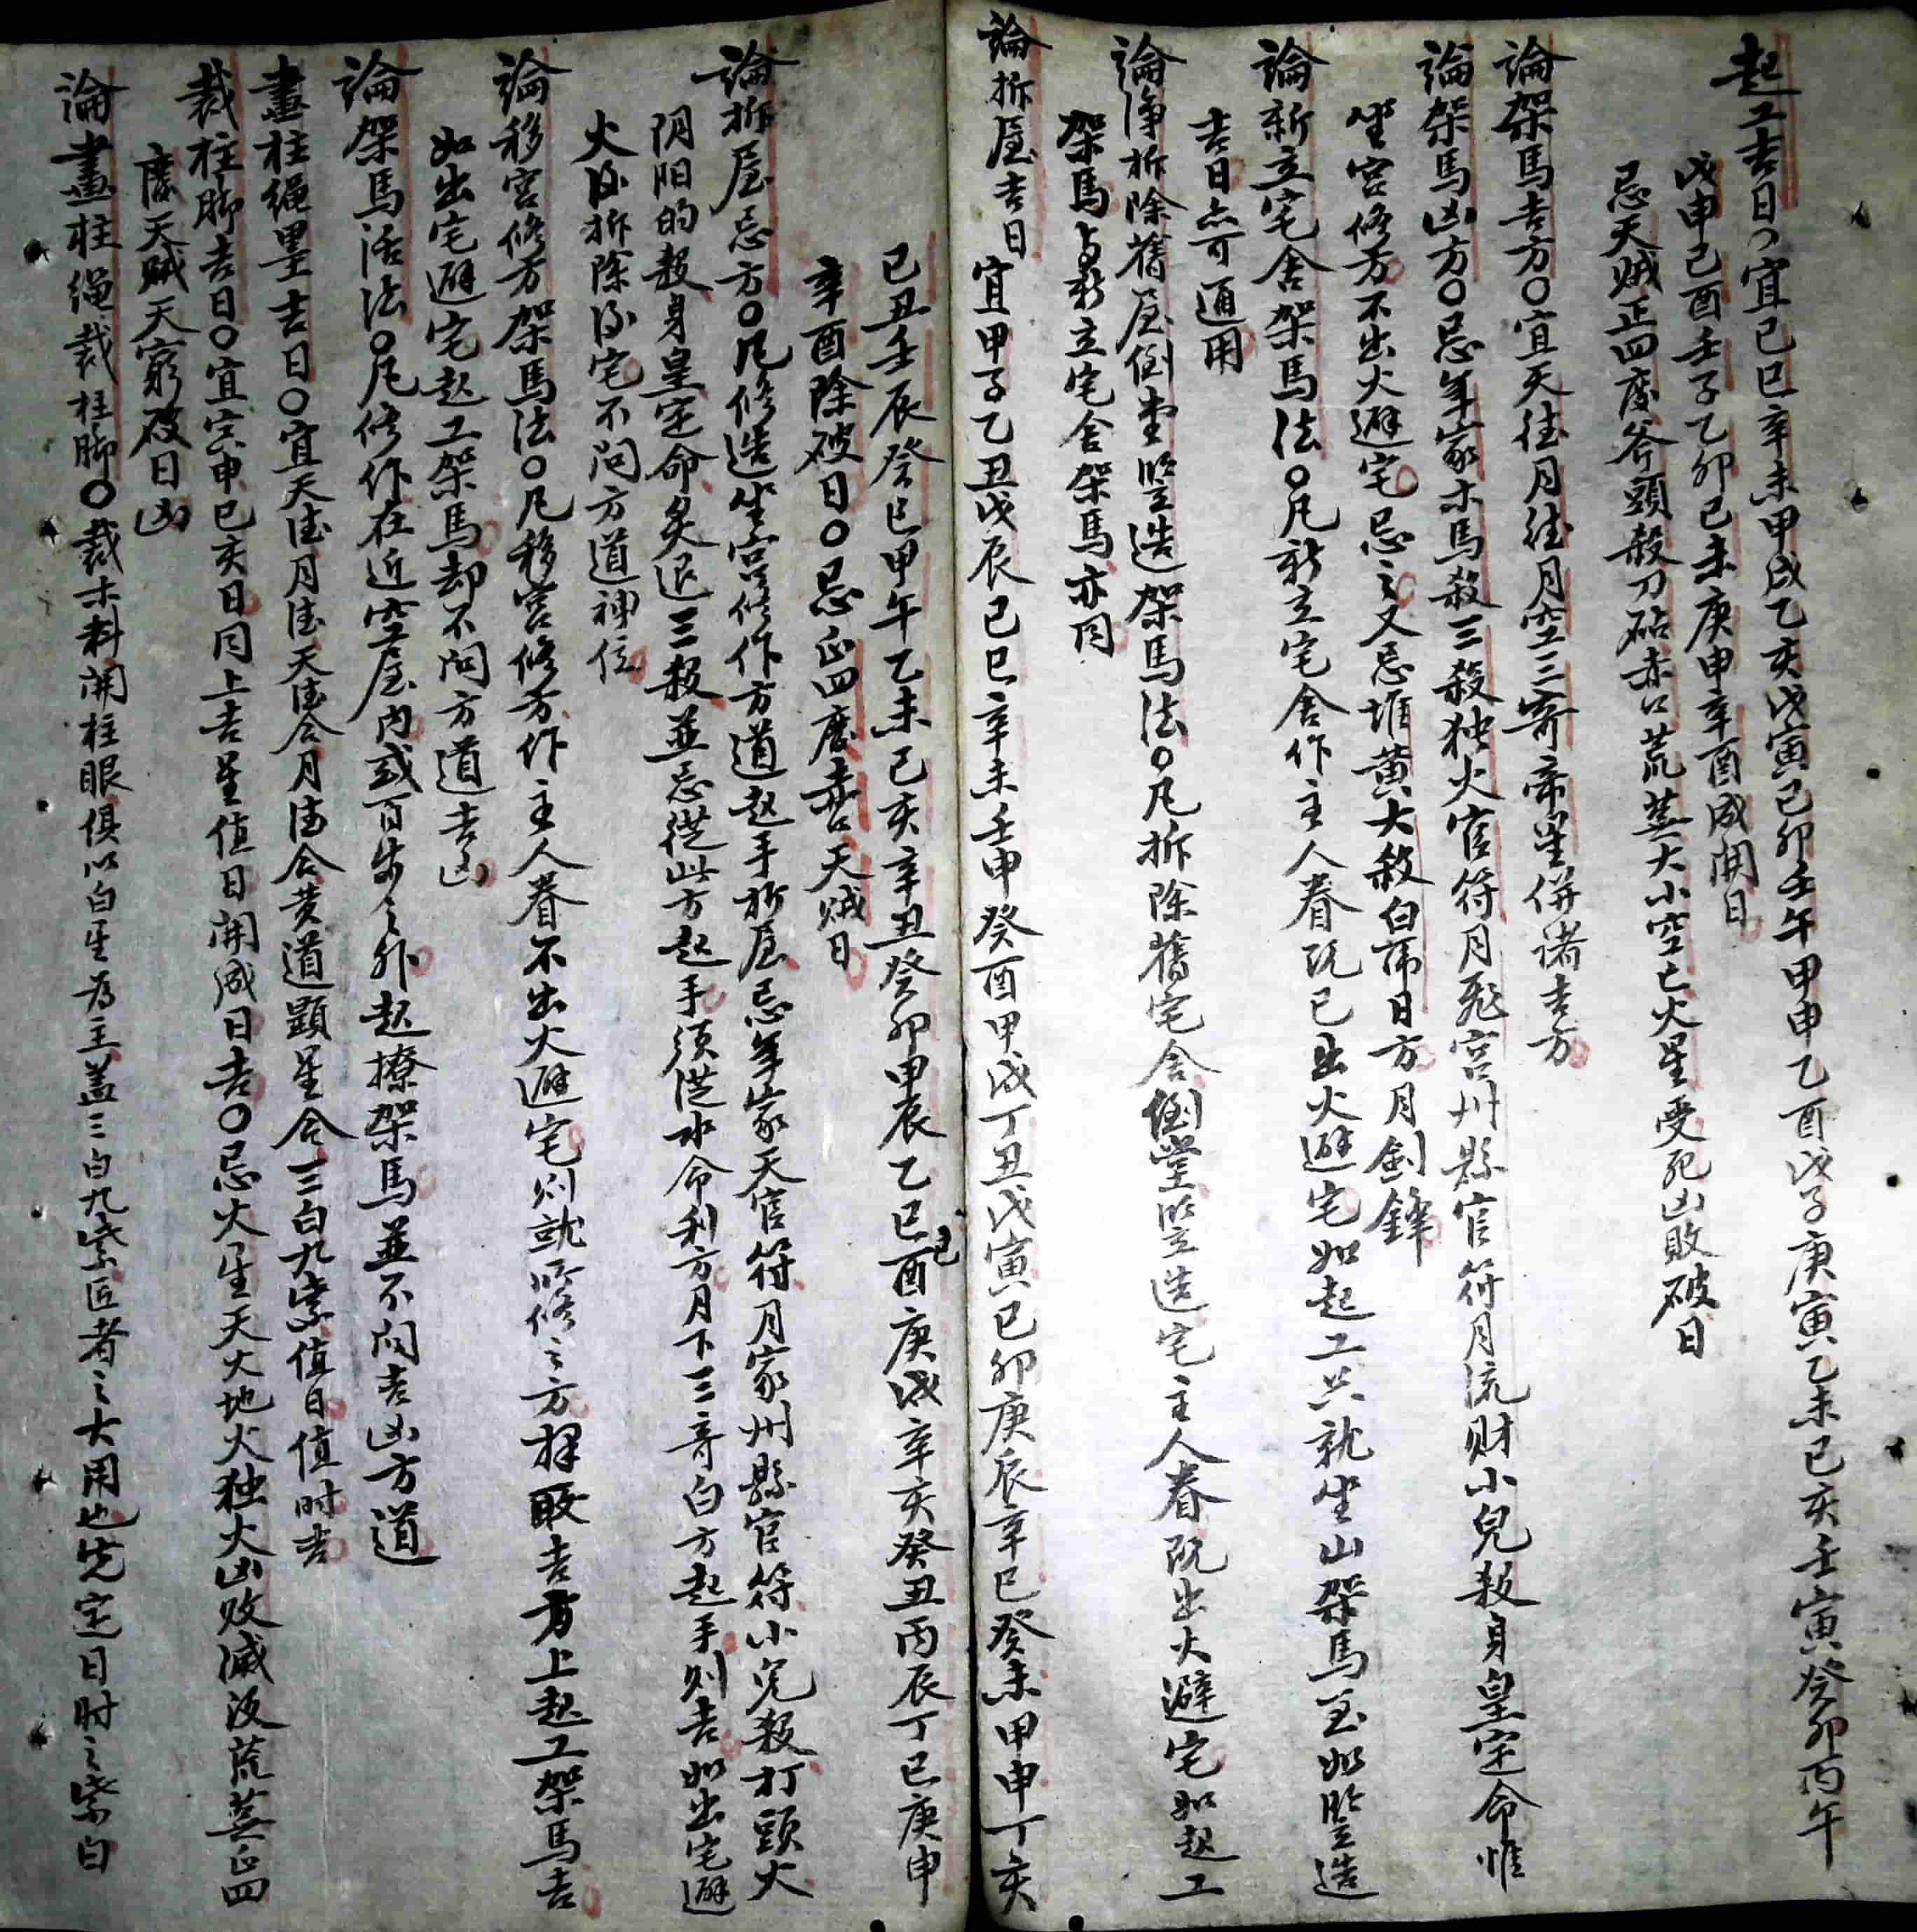 起工吉日○宜己巳辛未甲戌乙亥戊寅己卯壬午甲申乙酉戊子庚寅乙未己亥壬寅癸卯丙午
戊申己酉壬子乙卯己未庚申辛酉成開日
忌天賊正四废斧頭殺刀砧赤口荒蕪大小空亡火星受死凶敗破日
論架馬吉方○宜天德月德月空三寄帝星併诸吉方
論架馬凶方○忌年家木馬殺三殺独火官符月飛宫州縣官符月流财小兒殺身皇定命惟
坐宫修方不出火避宅忌之又忌堆黄大殺白帍日方月劍鋒
論新立宅舍架馬法○凡新立宅舍作主人眷既已出火避宅如起工只就坐山架馬至如竪造
吉日亦可通用
論净拆除舊屋倒堂竪造架馬法○凡拆除舊宅舍倒堂竪造宅主人眷既出火避宅如起工
架馬与新立宅舍架馬亦同
論拆屋吉日宜甲子乙丑戊辰己巳辛未壬申癸酉甲戌丁丑戊寅己卯庚辰辛巳癸未甲申丁亥
己丑壬辰癸巳甲午乙未己亥辛丑癸卯甲辰乙巳己酉庚戌辛亥癸丑丙辰丁巳庚申
辛酉除破日○忌正四废赤口天贼日
論拆屋忌方○凡修造坐宫修作方道起手拆屋忌年家天官符月家州縣官符小児殺打頭火
阴阳的殺身皇定命炙退三殺並忌從此方起手須從水命利方月下三奇白方起手则吉如出宅避
火後拆除後宅不问方道神位
論移宫修方架馬法○凡移宫修方作主人眷不出火避宅则就所修之方擇取吉方上起工架馬吉
如出宅避宅起工架馬却不问方道吉凶
論架馬活法○凡修作在近空屋内或百步之外起撩架馬並不问吉凶方道
畫柱绳墨吉日○宜天德月德天德合月德合黄道顯星合三白九紫值日值时吉
裁柱脚吉日○宜寅申巳亥日同上吉星值日開成日吉○忌火星天火地火独火凶败滅没荒蕪正四
废天贼天窮破日凶
論畫柱绳裁柱脚○裁木料開柱眼俱以白星为主盖三白九紫匠者之大用也先定日时之紫白